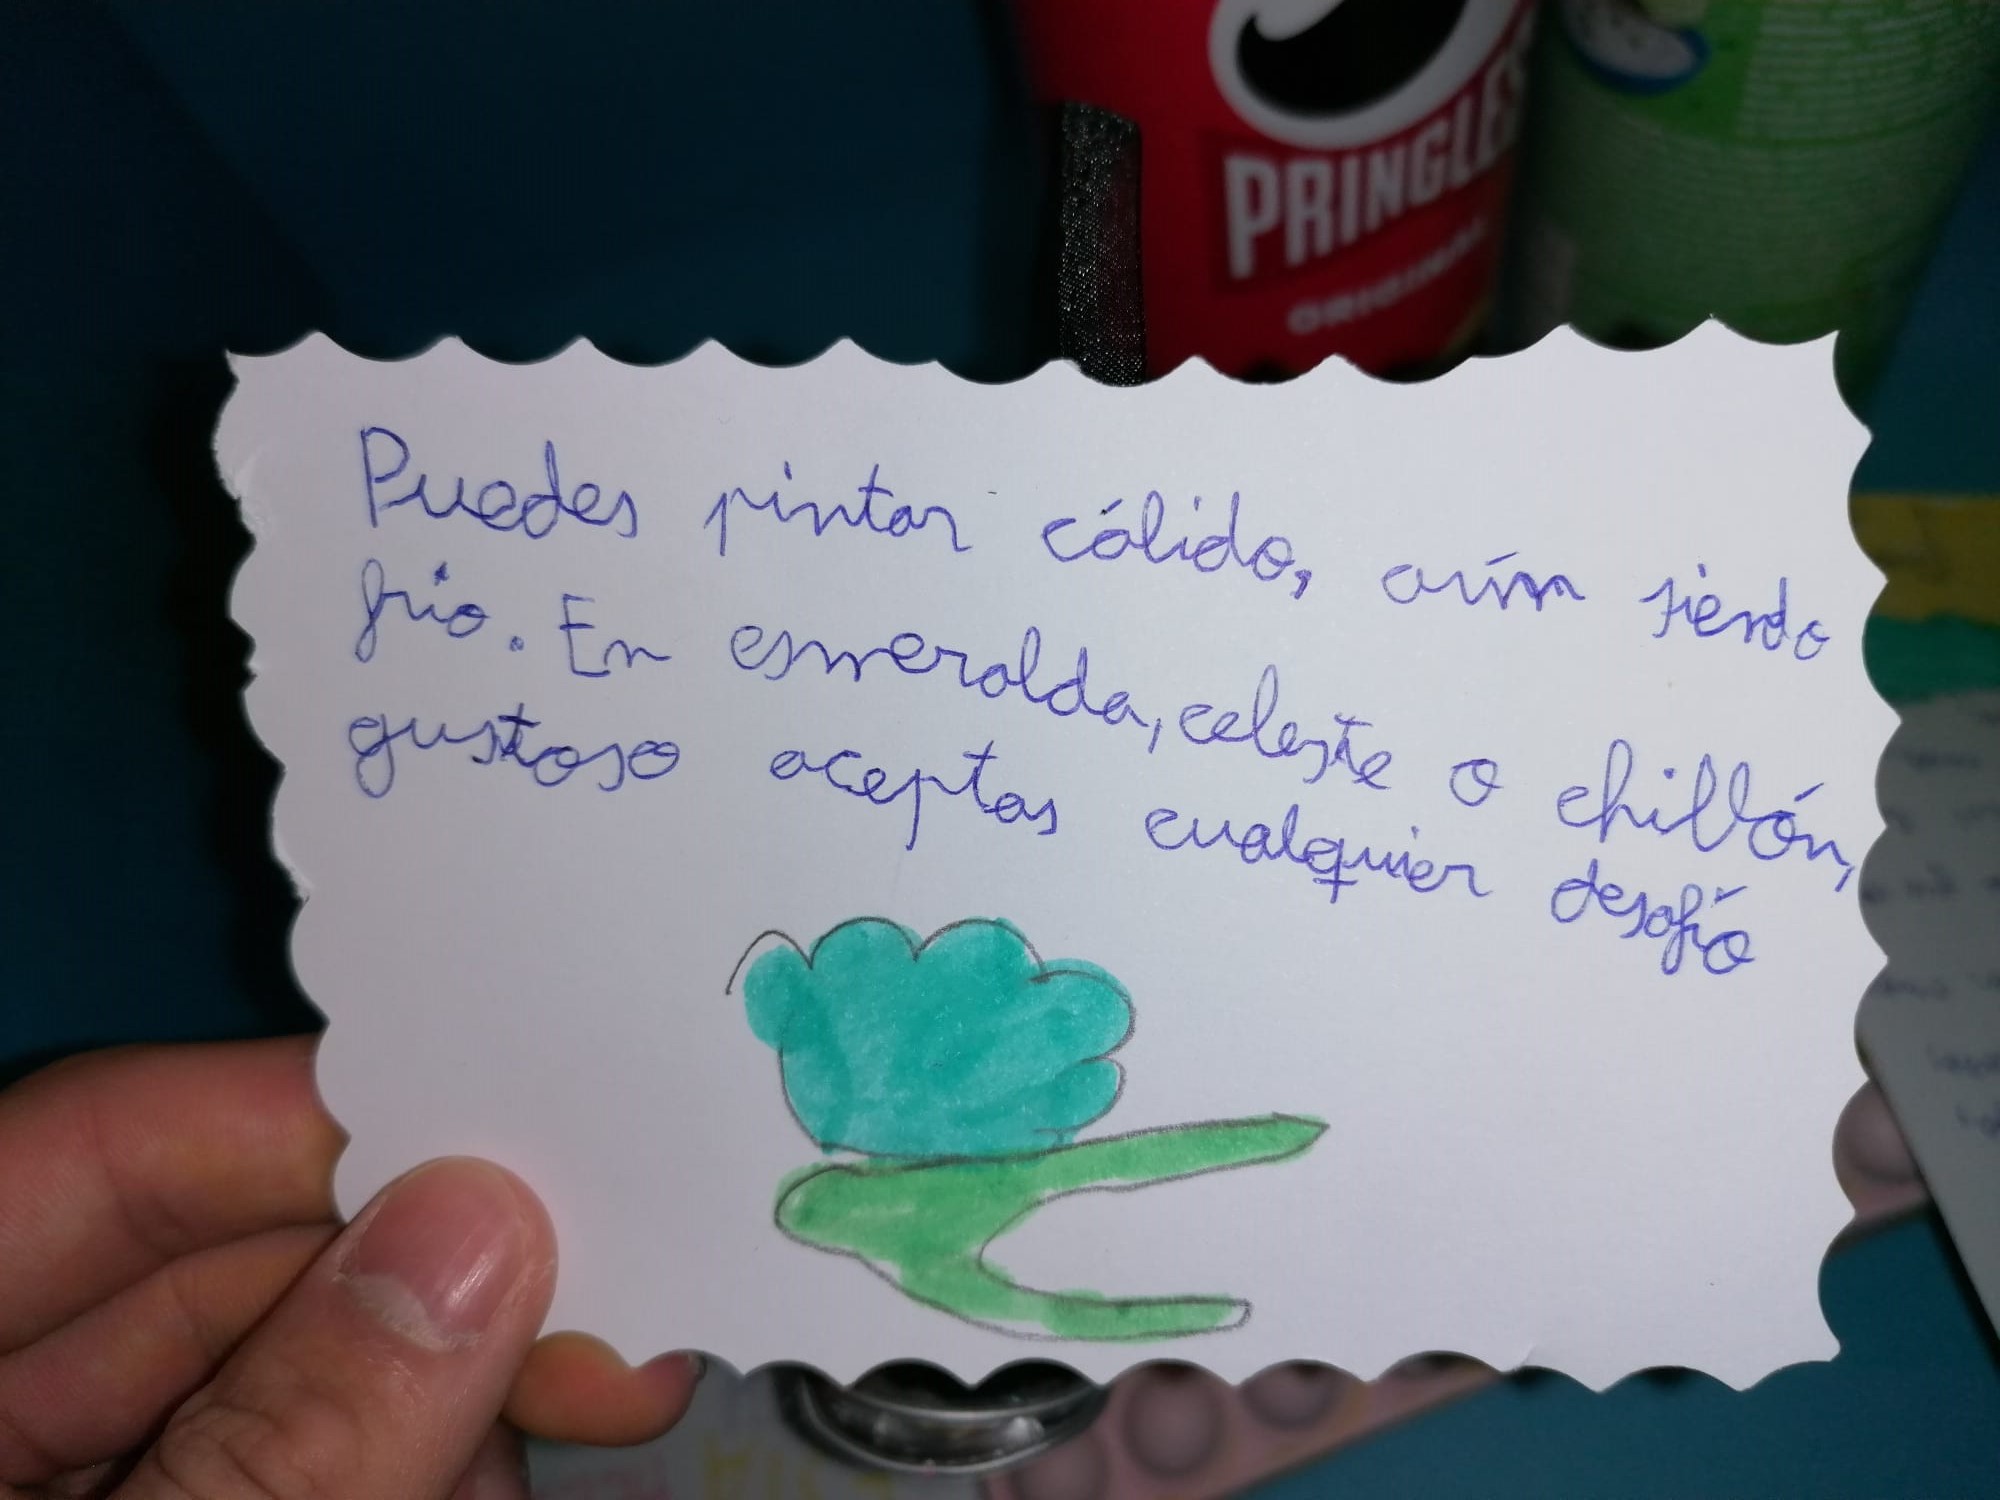 PRINGLES
ORIGINAL
Puedes pintar cálido, aún siendo
frío. En esmeralda, celeste o chillón,
gustoso aceptas cualquier desafío